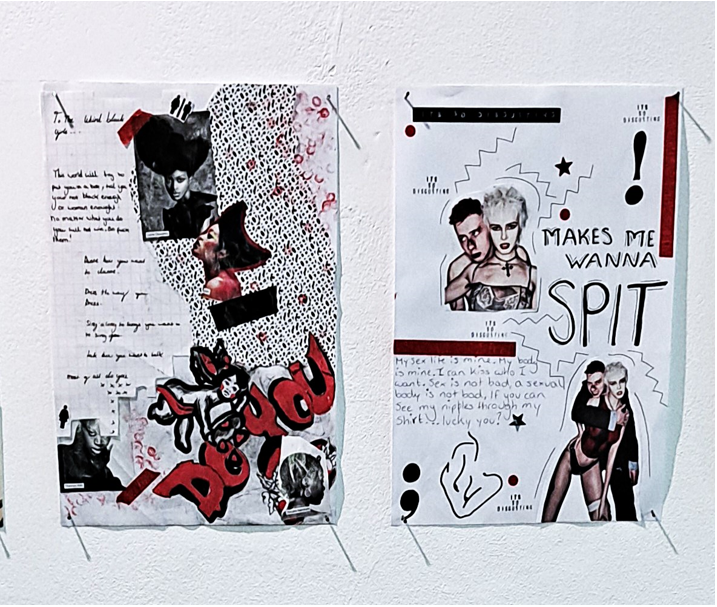 To The weird black
girls...
This world will try to
put you in a box, tell you
your not black enough
or woman enough!
No matter what you do
you will not win. So fuck
them!
Dance how you want
to dance!
Dress the way you
dress.
Sing along to songs you want
to
talk how you want to talk
Most of all do you
DO YOU
ITS SO DISGUSTING
ITS
SO
DISGUSTING
!
ITS
SO
DISGUSTING
MAKES ME
WANNA
SPIT
ITS
SO
DISGUSTING
My sex life is mine. My body
is mine. I can kiss who I
want. Sex is not bad, a sexual
body is not bad, If you can
see my nipples through my
shirt... lucky you!
;
ITS
SO
DISGUSTING